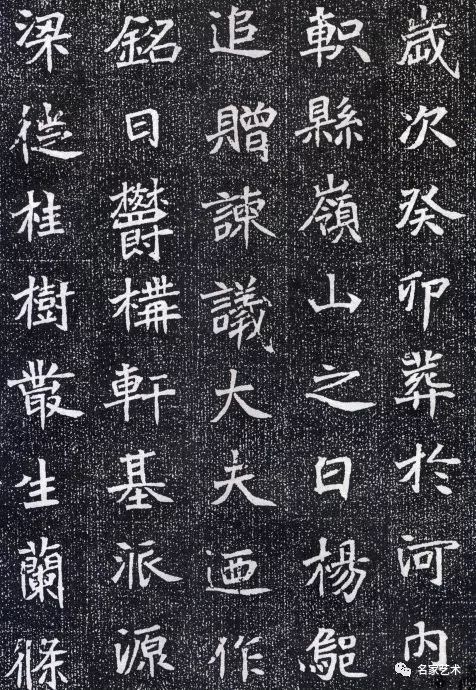 歲次癸卯葬於河內
軹縣嶺山之白楊鄔
追贈諫議大夫迺作
銘曰鬱構軒基派源
梁徙桂樹叢生蘭條
名家艺术